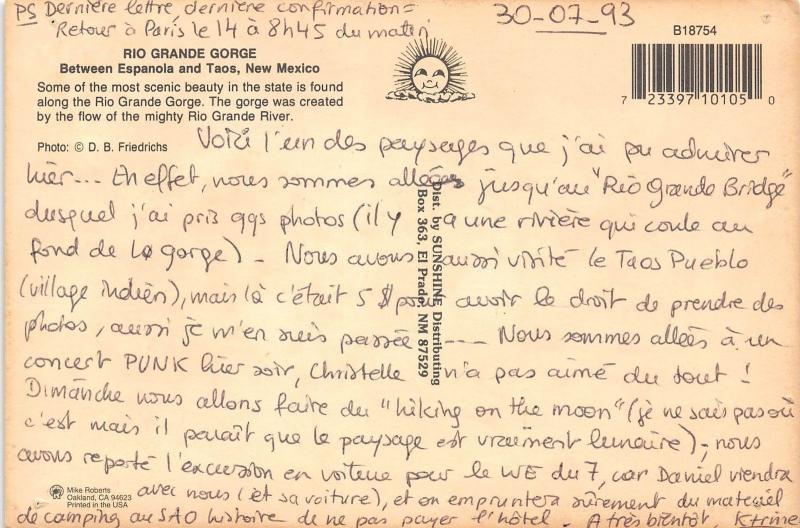 PS Dernière lettre dernière confirmation =
Retour à Paris le 14 à 8h45 du matin
30-07-93
B18754
RIO GRANDE GORGE
Between Espanola and Taos, New Mexico
Some of the most scenic beauty in the state is found
along the Rio Grande Gorge. The gorge was created
by the flow of the mighty Rio Grande River.
7 23397 10105 0
Photo: © D. B. Friedrichs
Voici l'un des paysages que j'ai pu admirer
hier... En effet, nous sommes allées jusqu'au "Rio Grande Bridge"
duquel j'ai pris qqs photos (il y a une rivière qui coule au
fond de la gorge) - Nous avons aussi visité le Taos Pueblo
(village indien), mais là c'était 5 $ pour avoir le droit de prendre des
photos, aussi je m'en suis passée ---- Nous sommes allées à un
concert PUNK hier soir, Christelle n'a pas aimé du tout !
Dimanche nous allons faire du "hiking on the moon" (je ne sais pas où
c'est mais il paraît que le paysage est vraiment lunaire) -, nous
avons reporté l'excursion en voiture pour le WE du 7, car Daniel viendra
avec nous (et sa voiture), et on empruntera sûrement du matériel
de camping au SAO histoire de ne pas payer l'hôtel. A très bientôt
Dist. by SUNSHINE Distributing
Box 363, El Prado, NM 87529
Mike Roberts
Oakland, CA 94623
Printed in the USA